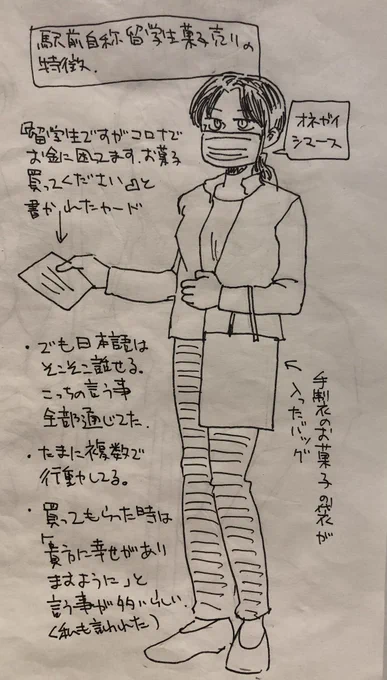 駅前自称留学生菓子売りの
特徴.
オネガイ
シマース
『留学生ですがコロナで
お金に困ってます。お菓子
買ってください。』と
書かれたカード
・でも日本語は
そこそこ話せる。
こっちの言う事
全部通じてた.
・たまに複数で
行動してる。
・買ってもらった時は
「貴方に幸せがあり
ますように」と
言う事が多いらしい.
(私も言われた)
手製のお菓子の袋が
入ったバッグ